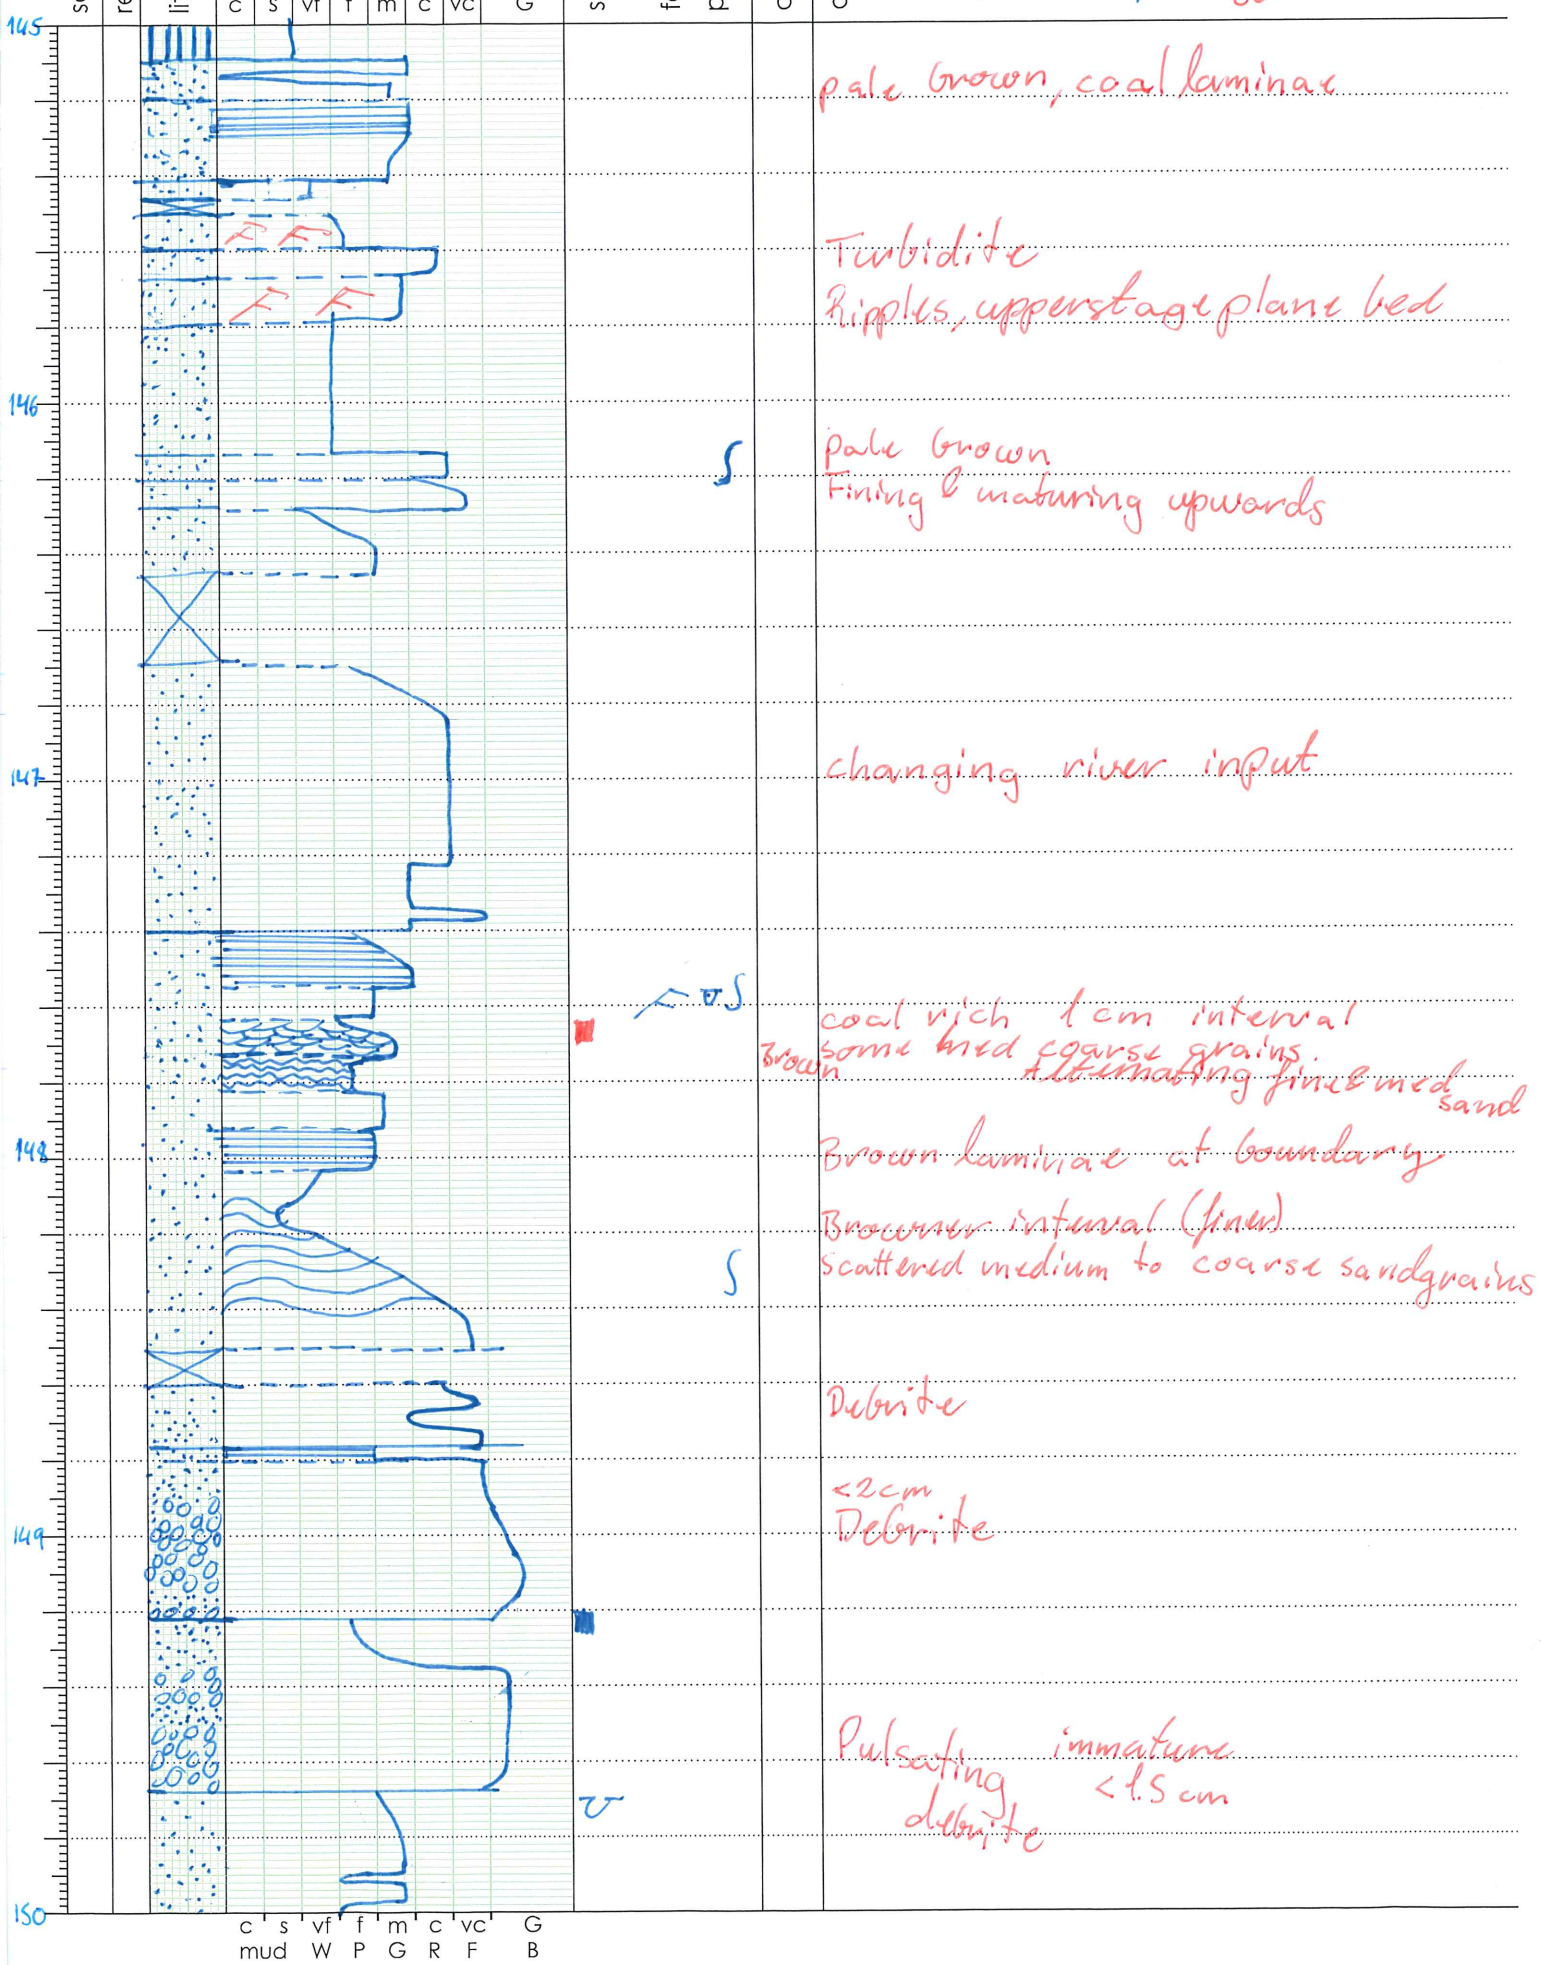 c s vf f m c vc G
145
pale brown, coal laminae
Turbidite
Ripples, upperstage plane bed
146
pale brown
Fining & maturing upwards
147
changing river input
coal rich 1 cm interval
some med coarse grains.
Brown
Alternating fine & med
sand
148
Brown laminae at boundary
Browner interval (finer)
scattered medium to coarse sandgrains
Debrite
<2cm
149
Debrite
Pulsating immature
<1.5 cm
debrite
150
c s vf f m c vc G
mud W P G R F B